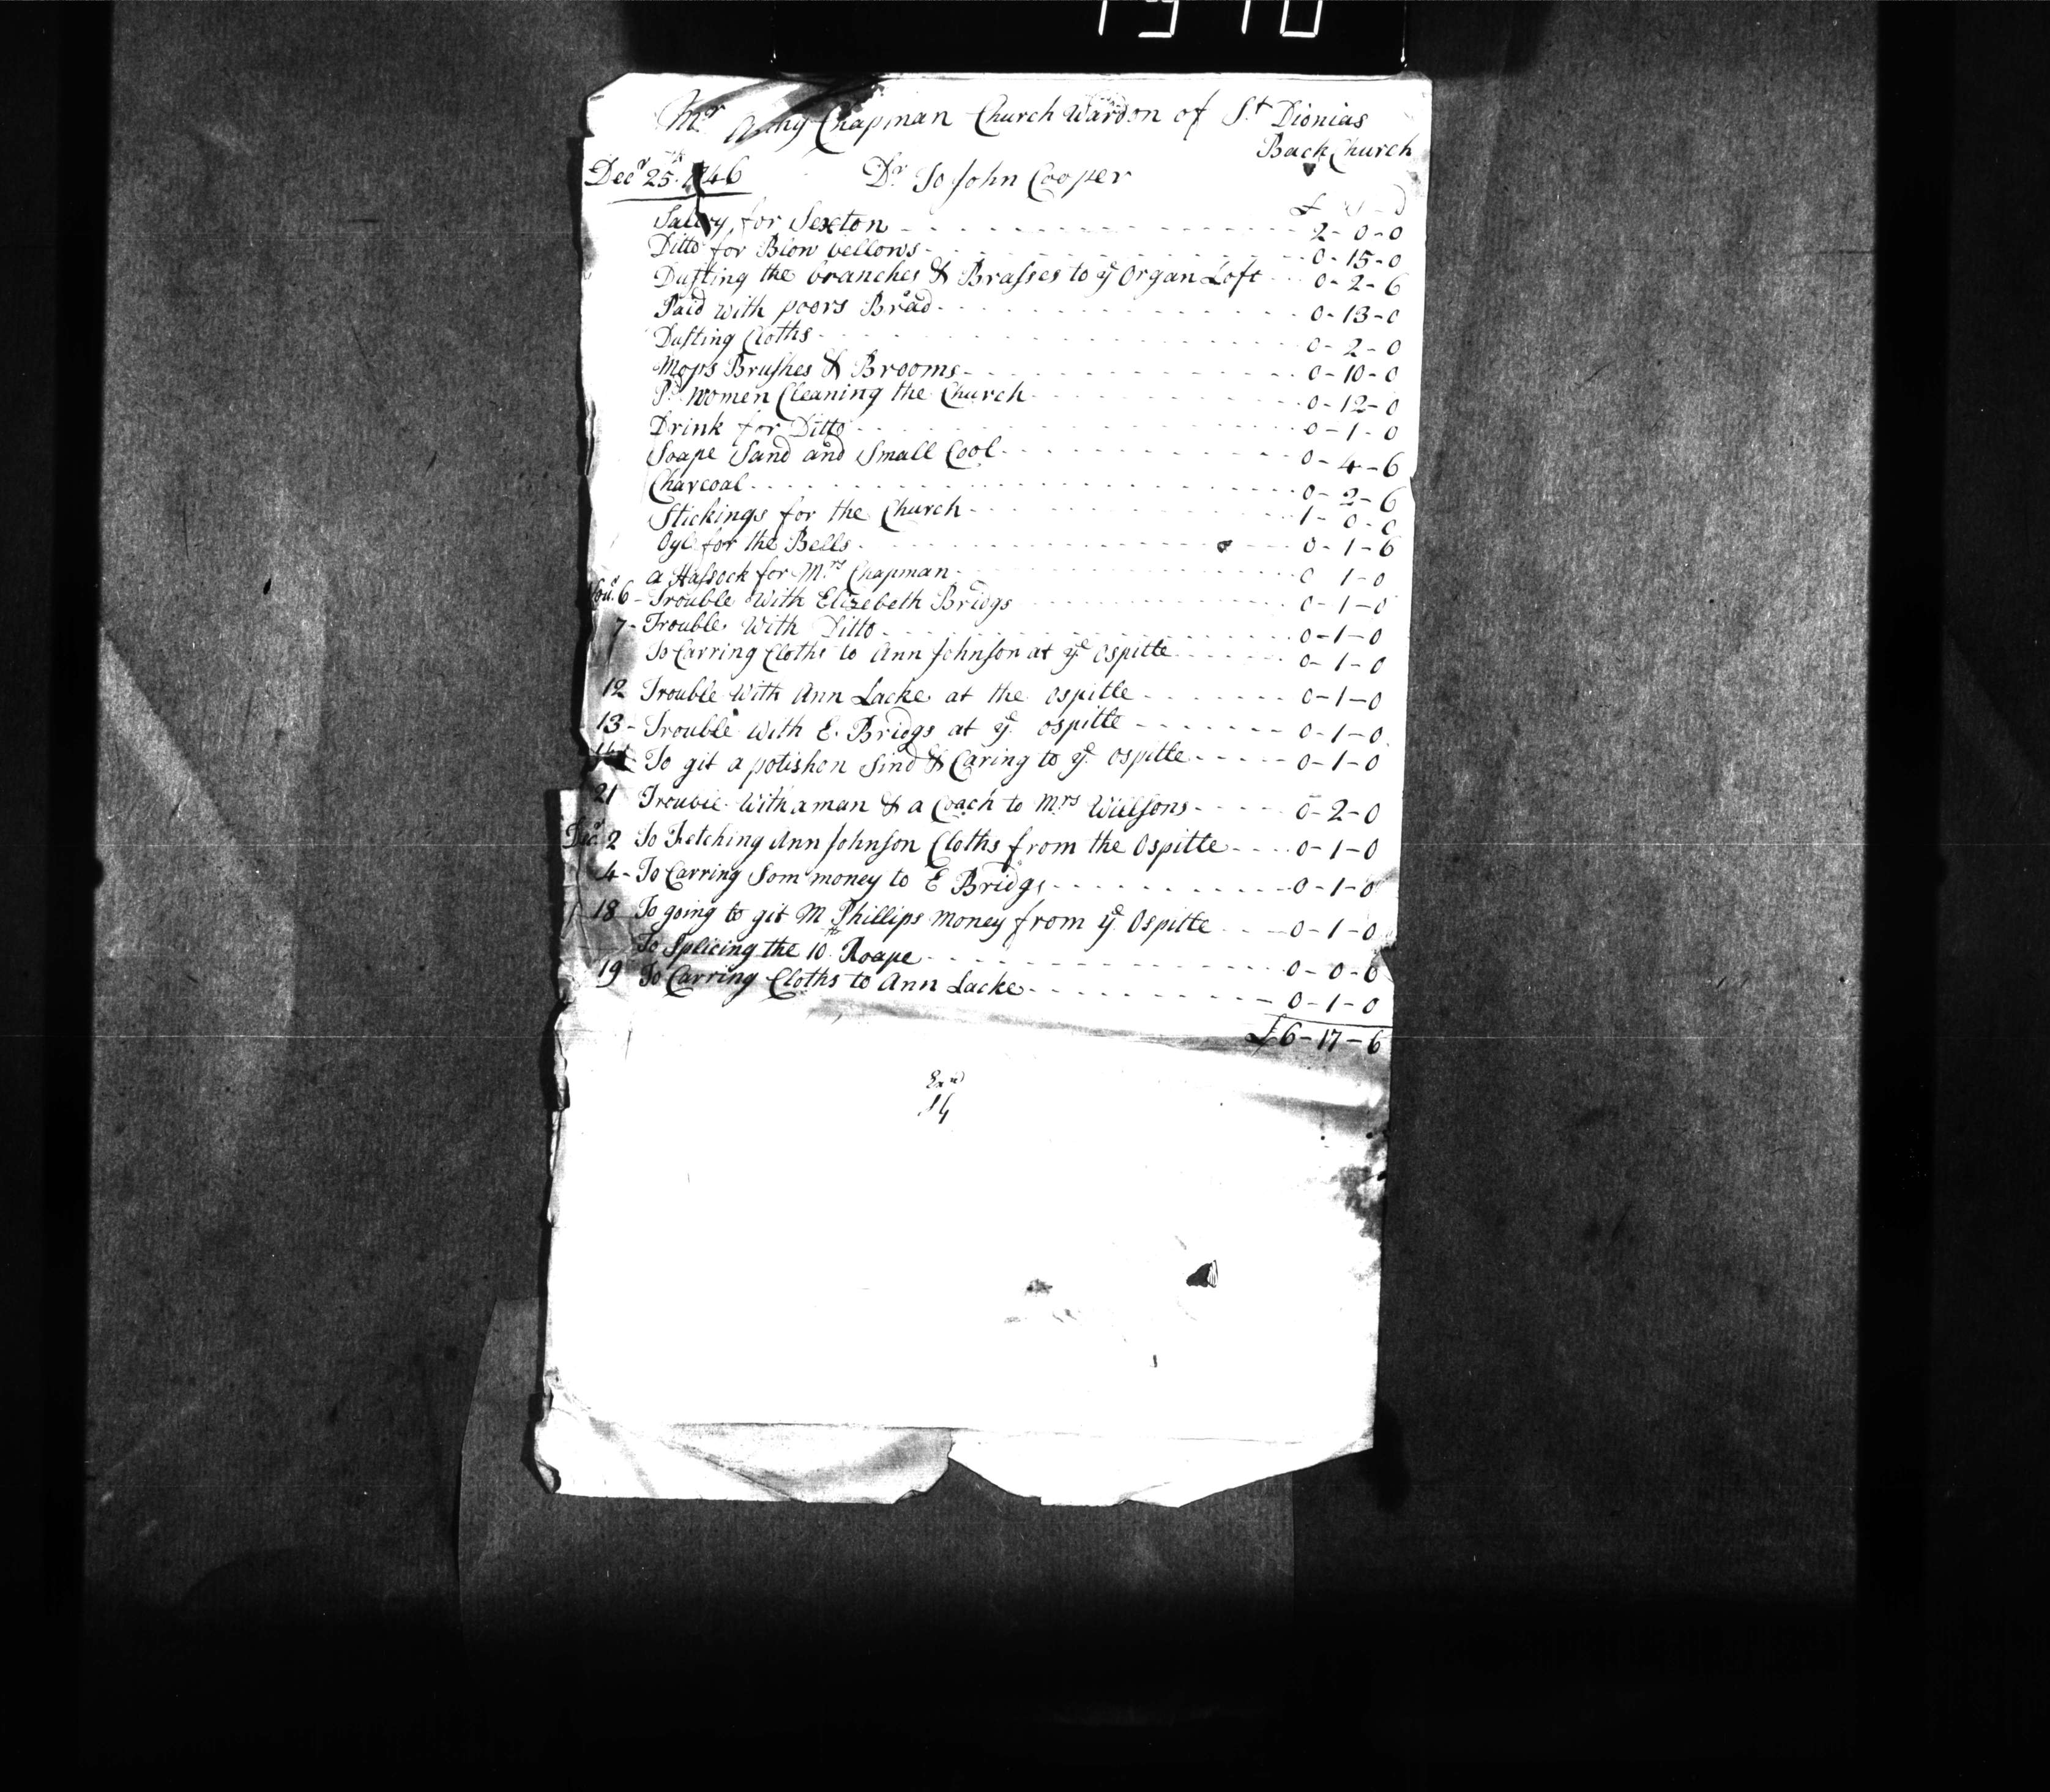 1910
Mr Anthy Chapman Church Wardon of St Dionias
Back Church
Decr 25th 1746 Dr To John Cooper
£ S D
Salery for Sexton 2-0-0
Ditto for Blow bellows 0-15-0
Dusting the branches & Brasses to ye Organ Loft 0-2-6
Paid with poors Bread 0-13-0
Dusting Cloths 0-2-0
Mops Brushes & Brooms 0-10-0
Pd Women Cleaning the Church 0-12-0
Drink for Ditto 0-1-0
Soape Sand and Small Cool 0-4-6
Charcoal 0-2-6
Stickings for the Church 1-0-0
Oyl for the Bells 0-1-6
a Hassock for Mrs Chapman 0 1-0
Nour 6- Trouble With Elizebeth Bridgs 0-1-0
7- Trouble With Ditto 0-1-0
To Carring Cloths to Ann Johnson at ye Ospitle 0-1-0
12 Trouble With Ann Lacke at the Ospitle 0-1-0
13- Trouble With E. Bridgs at ye Ospitle 0-1-0
To git a potishon Sind & Caring to ye Ospitle 0-1-0
21 Trouble With a man & a Coach to Mrs Willsons 0-2-0
Decr 2 To Fetching Ann Johnson Cloths from the Ospitle 0-1-0
4- To Carring Som money to E Bridgs 0-1-0
18 To going to git M Phillips money from ye Ospitle 0-1-0
To Splicing the 10th Roape 0-0-6
19 To Carring Cloths to Ann Lacke 0-1-0
£6-17-6
Exd